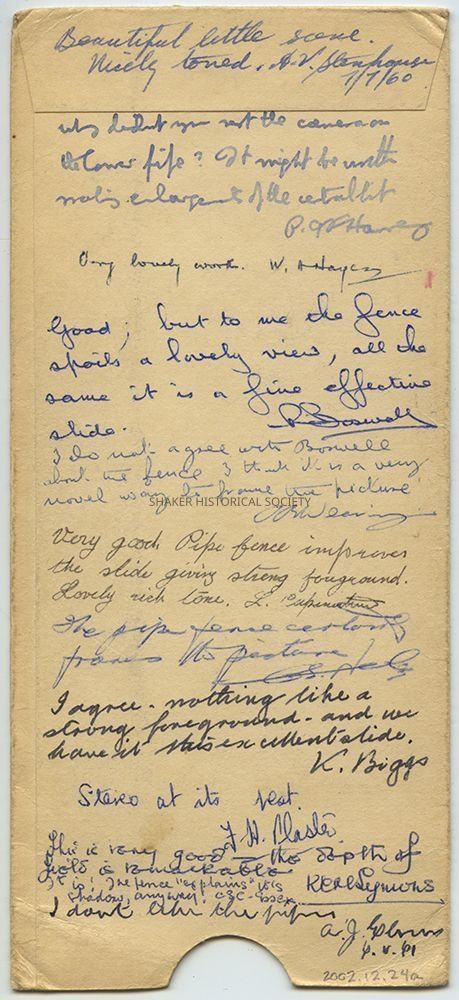 Beautiful little scene.
Nicely toned. A.V. Stenhouse
7/7/60
why didn't you rest the camera on
the lower pipe? It might be worth
making enlargements of the central bit
P. Harvey
Very lovely work. W. A Hayes
Good; but to me the fence
spoils a lovely view, all the
same it is a fine effective
slide. Boswell
I do not agree with Boswell
about the fence I think it is a very
novel way to frame the picture
SHAKER HISTORICAL SOCIETY
Very good. Pipe fence improves
the slide giving strong foreground.
Lovely rich tone. L.
The pipe fence certainly
frames the picture!
I agree - nothing like a
strong foreground - and we
have it this excellent slide.
K. Biggs
Stereo at its best.
F. H.
This is very good - the depth of
field is remarkable
K E H Symons
It is! The fence "explains" its
shadow, anyway!
I dont like the pipes
A. J.
2002.12.24a